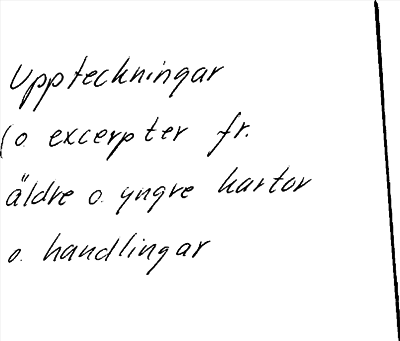 Uppteckningar
(o. excerpter fr.
äldre o. yngre kartor
o. handlingar